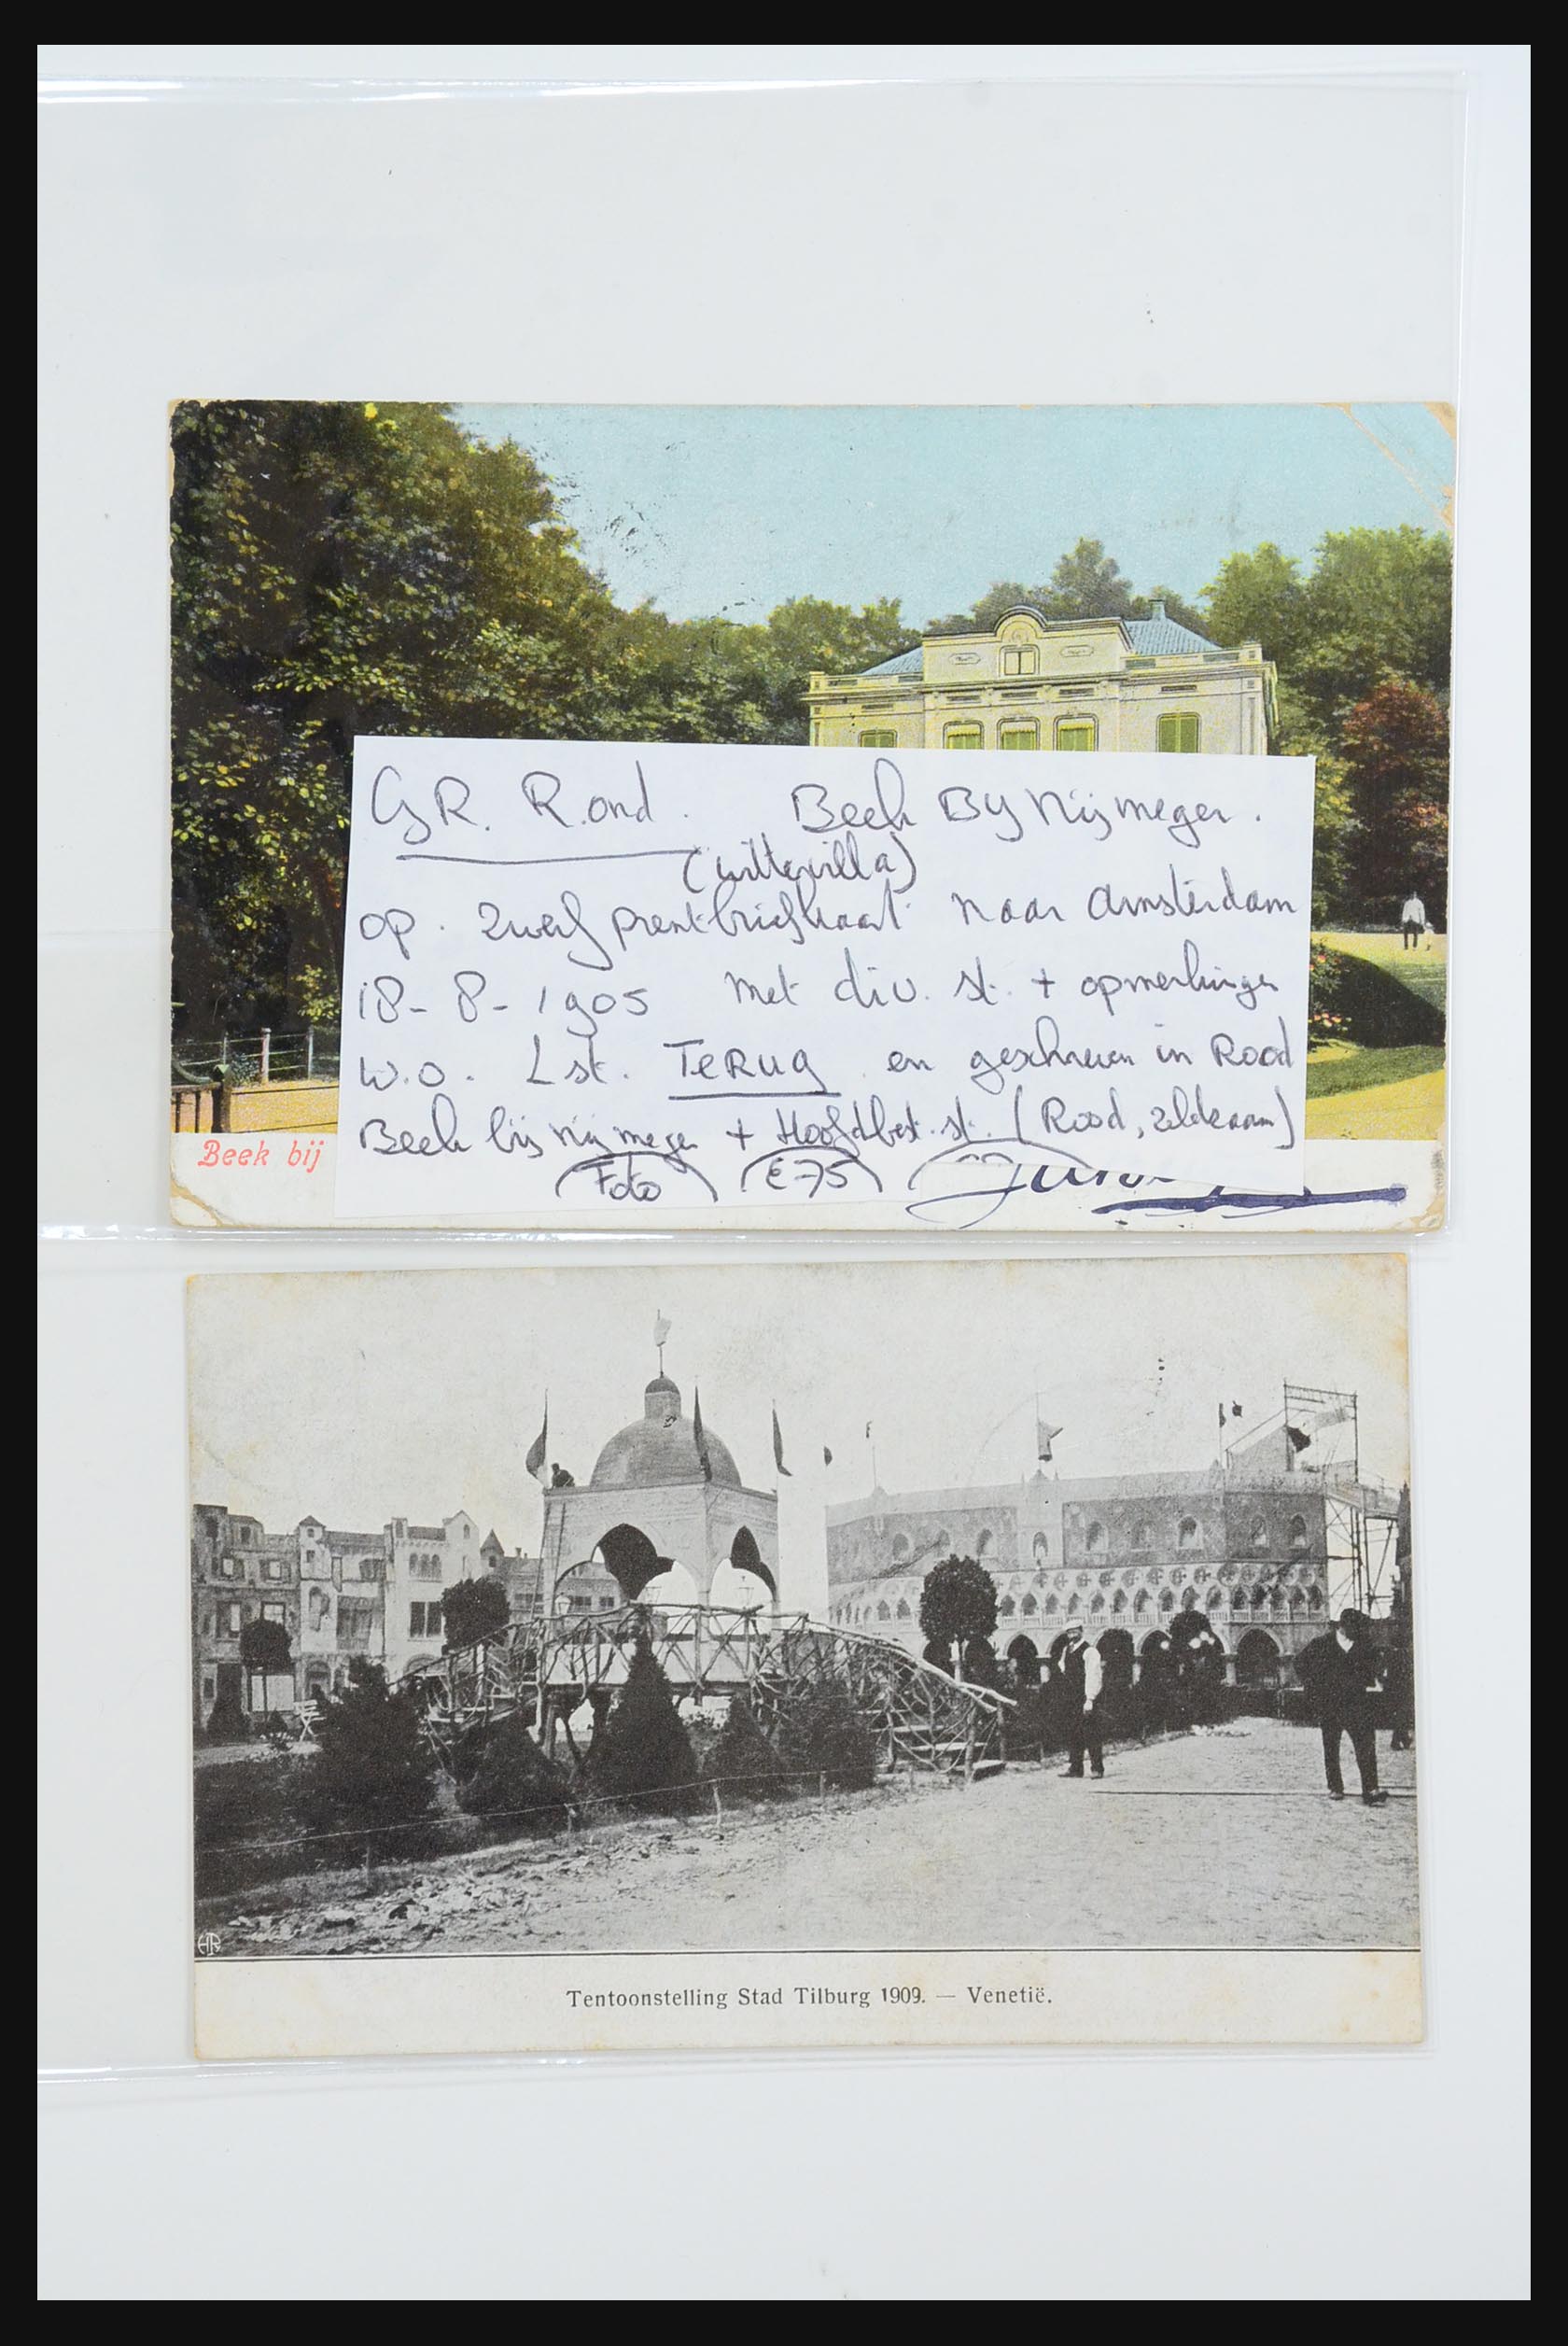 GR. Rond. Beek By Nijmegen.
(Wittevilla)
op. zwerf prentbriefkaart naar Amsterdam
18-8-1905 met div. st. + opmerkingen
w.o. Lst. TERUG en geschreven in Rood
Beek bij nijmegen + Hoofdbest. st. (Rood, zeldzaam)
Foto €75
Beek bij
HR
Tentoonstelling Stad Tilburg 1909. — Venetië.